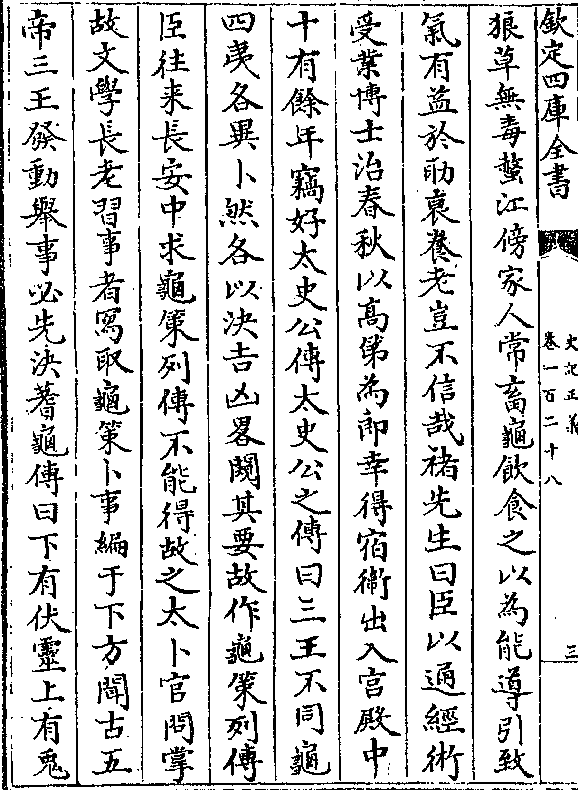 欽定四庫全書
史記正義
卷一百二十八
三
狼草無毒螫江傍家人常畜龜飲食之以為能導引致
氣有益於助衰養老豈不信哉褚先生曰臣以通經術
受業博士治春秋以高第為郎幸得宿衛出入宫殿中
十有餘年竊好太史公傳太史公之傳曰三王不同龜
四夷各異卜然各以決吉凶畧闚其要故作龜策列傳
臣往来長安中求龜策列傳不能得故之太卜官問掌
故文學長老習事者寫取龜策卜事編于下方聞古五
帝三王發動舉事必先決蓍龜傳曰下有伏靈上有兎